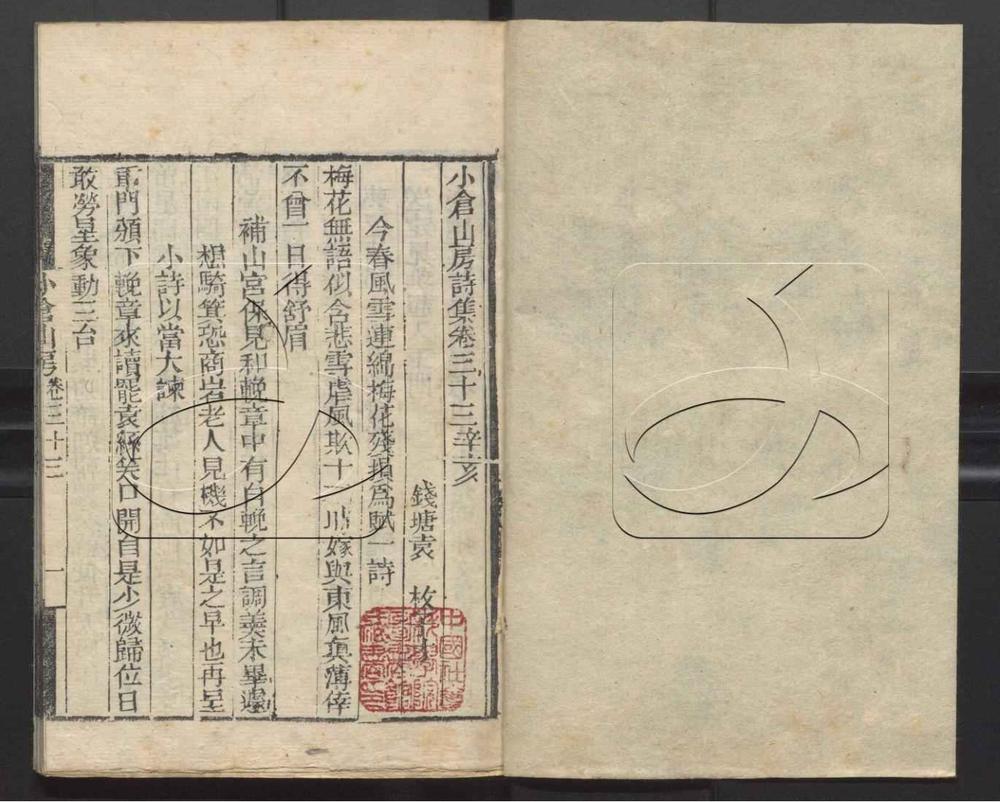 小倉山房詩集卷三十三辛亥
錢塘袁 枚子才
今春風雪連綿梅花殘損爲賦一詩
梅花無語似含悲雪虐風欺十二時嫁與東風眞薄倖
不曾一日得舒眉
補山宮保見和輓章中有自輓之言調羹未畢遽
想騎箕恐商岩老人見機不如是之早也再呈
小詩以當大諫
軍門頒下輓章來讀罷袁絲笑口開自是少微歸位日
敢勞星象動三台
小倉山房 卷三十三 一